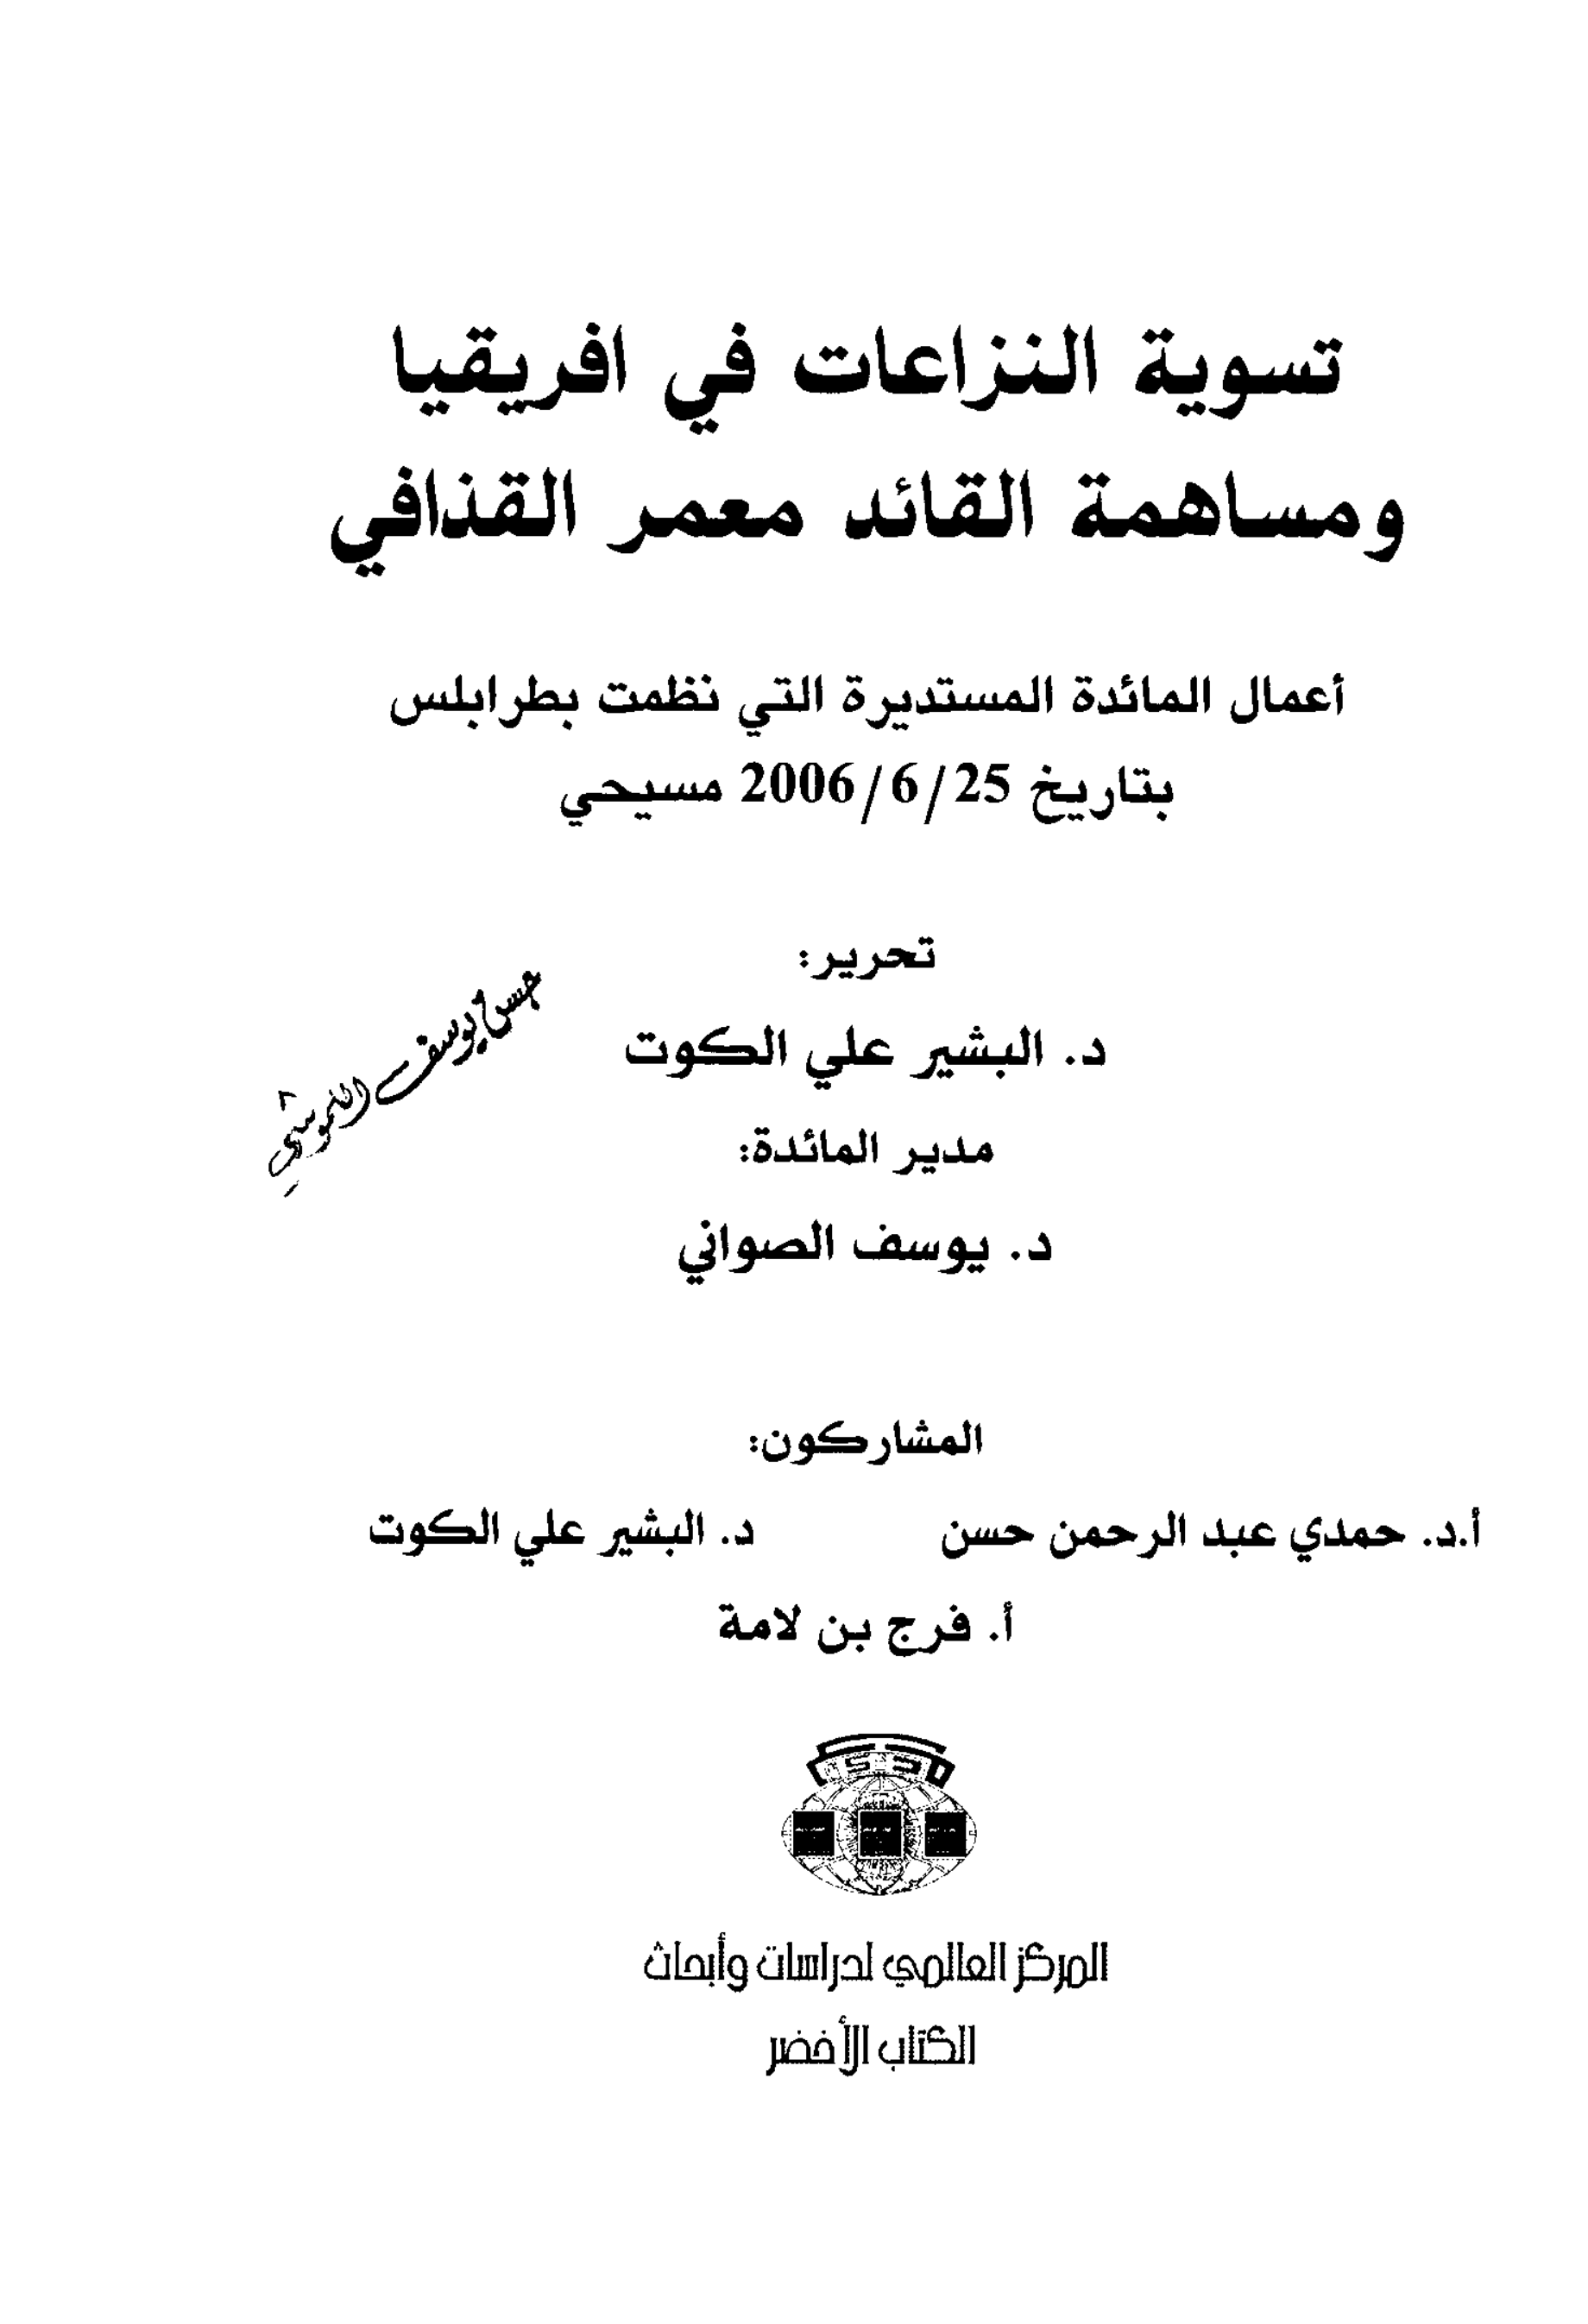 تسوية النزاعات في افريقيا
ومساهمة القائد معمر القذافي
أعمال المائدة المستديرة التي نظمت بطرابلس
بتاريخ 25/6/2006 مسيحي
تحرير:
د. البشير علي الكوت
حسن يوسف
مدير المائدة:
د. يوسف الصواني
المشاركون:
أ.د. حمدي عبد الرحمن حسن د. البشير علي الكوت
أ. فرج بن لامة
المركز العالمي لدراسات وأبحاث
الكتاب الأخضر